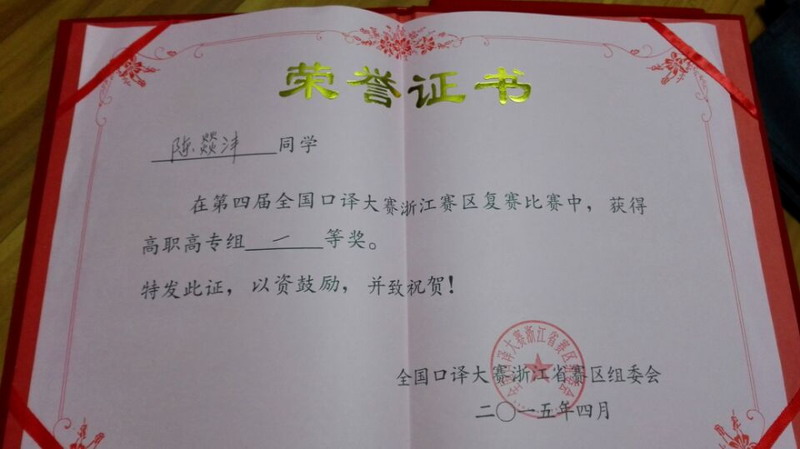 荣誉证书
陈燚沣 同学
在第四届全国口译大赛浙江赛区复赛比赛中，获得
高职高专组 一 等奖。
特发此证，以资鼓励，并致祝贺！
全国口译大赛浙江省赛区组委会
二〇一五年四月